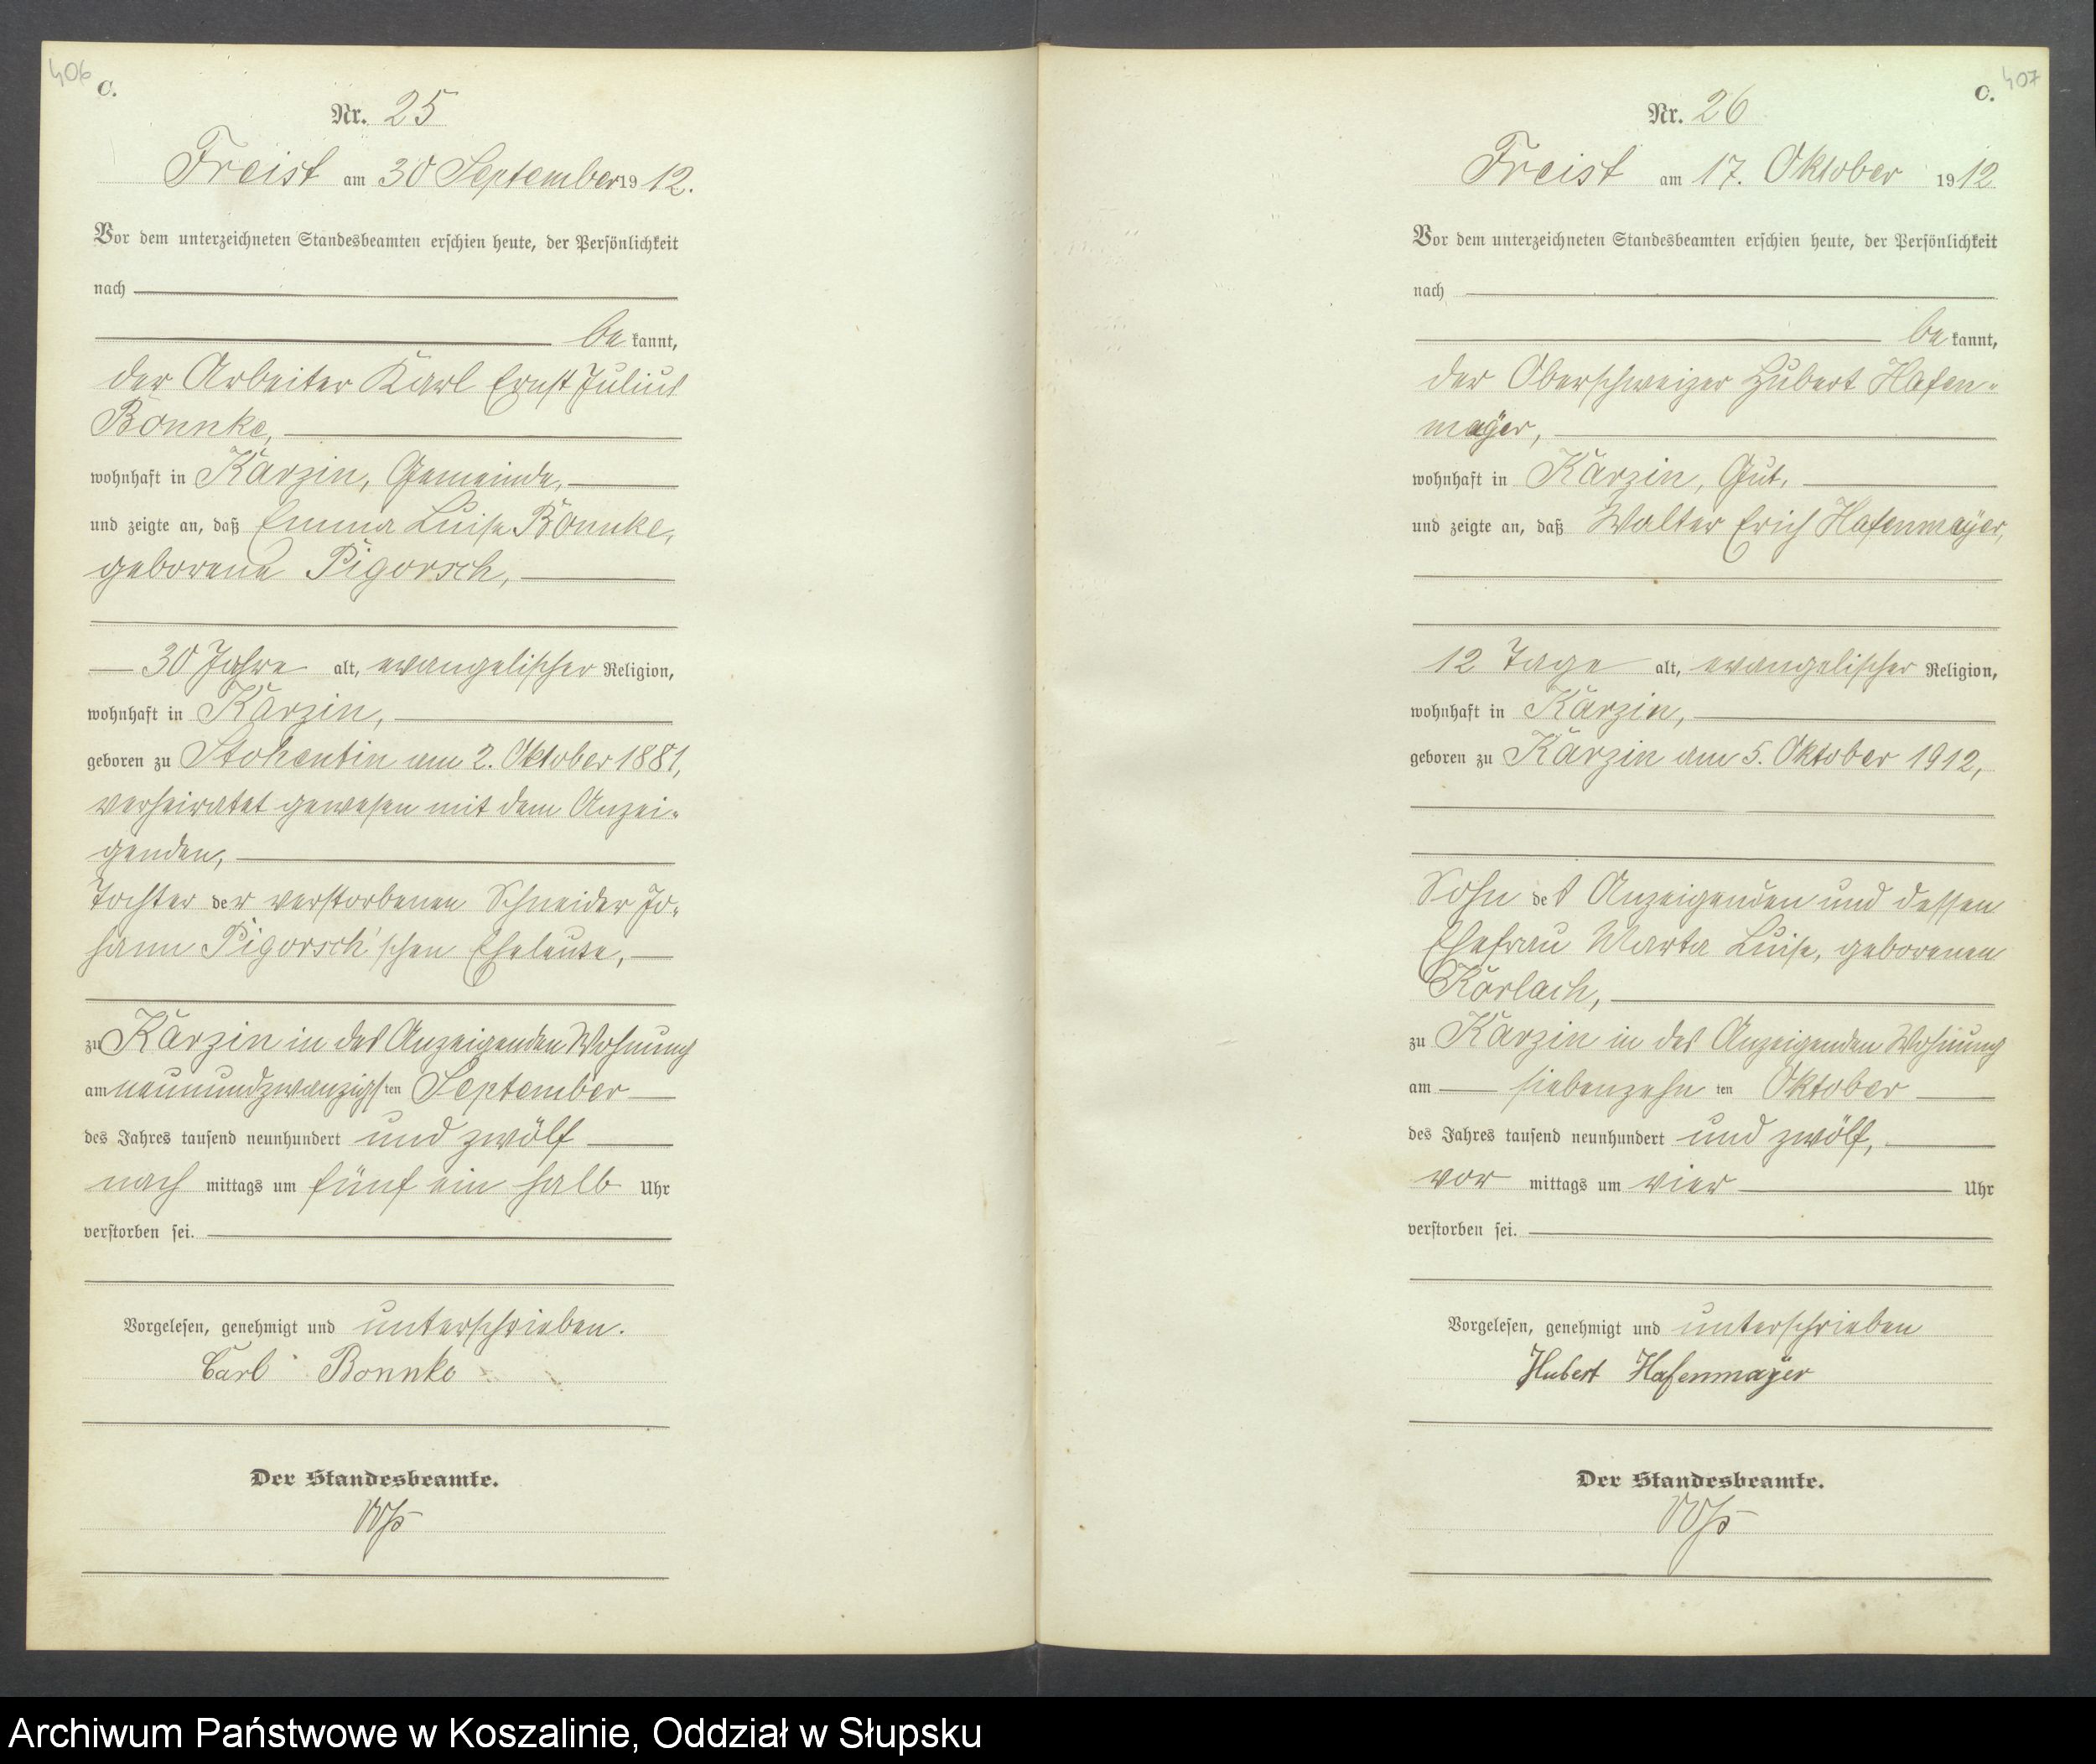 406
C.
Nr. 25
Freist am 30 September 1912.
Vor dem unterzeichneten Standesbeamten erschien heute, der Persönlichkeit
nach
be kannt,
der Arbeiter Karl Ernst Julius
Bonnke,
wohnhaft in Karzin, Gemeinde,
und zeigte an, daß Emma Luise Bonnke,
geborene Pigorsch,
30 Jahre alt, evangelischer Religion,
wohnhaft in Karzin,
geboren zu Stohentin am 2. Oktober 1881,
verheiratet gewesen mit dem Anzei-
genden,
Tochter der verstorbenen Schneider Jo-
hann Pigorsch'schen Eheleute,
zu Karzin in des Anzeigenden Wohnung
am neunundzwanzigsten September
des Jahres tausend neunhundert und zwölf
nach mittags um fünf ein halb Uhr
verstorben sei.
Vorgelesen, genehmigt und unterschrieben.
Carl Bonnke
Der Standesbeamte.
407
C.
Nr. 26
Freist am 17. Oktober 1912
Vor dem unterzeichneten Standesbeamten erschien heute, der Persönlichkeit
nach
be kannt,
der Oberschweizer Hubert Hafen-
mayer,
wohnhaft in Karzin, Gut,
und zeigte an, daß Walter Erich Hafenmayer,
12 Tage alt, evangelischer Religion,
wohnhaft in Karzin,
geboren zu Karzin am 5. Oktober 1912,
Sohn des Anzeigenden und dessen
Ehefrau Marta Luise, geborenen
Korlach,
zu Karzin in des Anzeigenden Wohnung
am siebenzehn ten Oktober
des Jahres tausend neunhundert und zwölf,
vor mittags um vier Uhr
verstorben sei.
Vorgelesen, genehmigt und unterschrieben
Hubert Hafenmayer
Der Standesbeamte.
Archiwum Państwowe w Koszalinie, Oddział w Słupsku